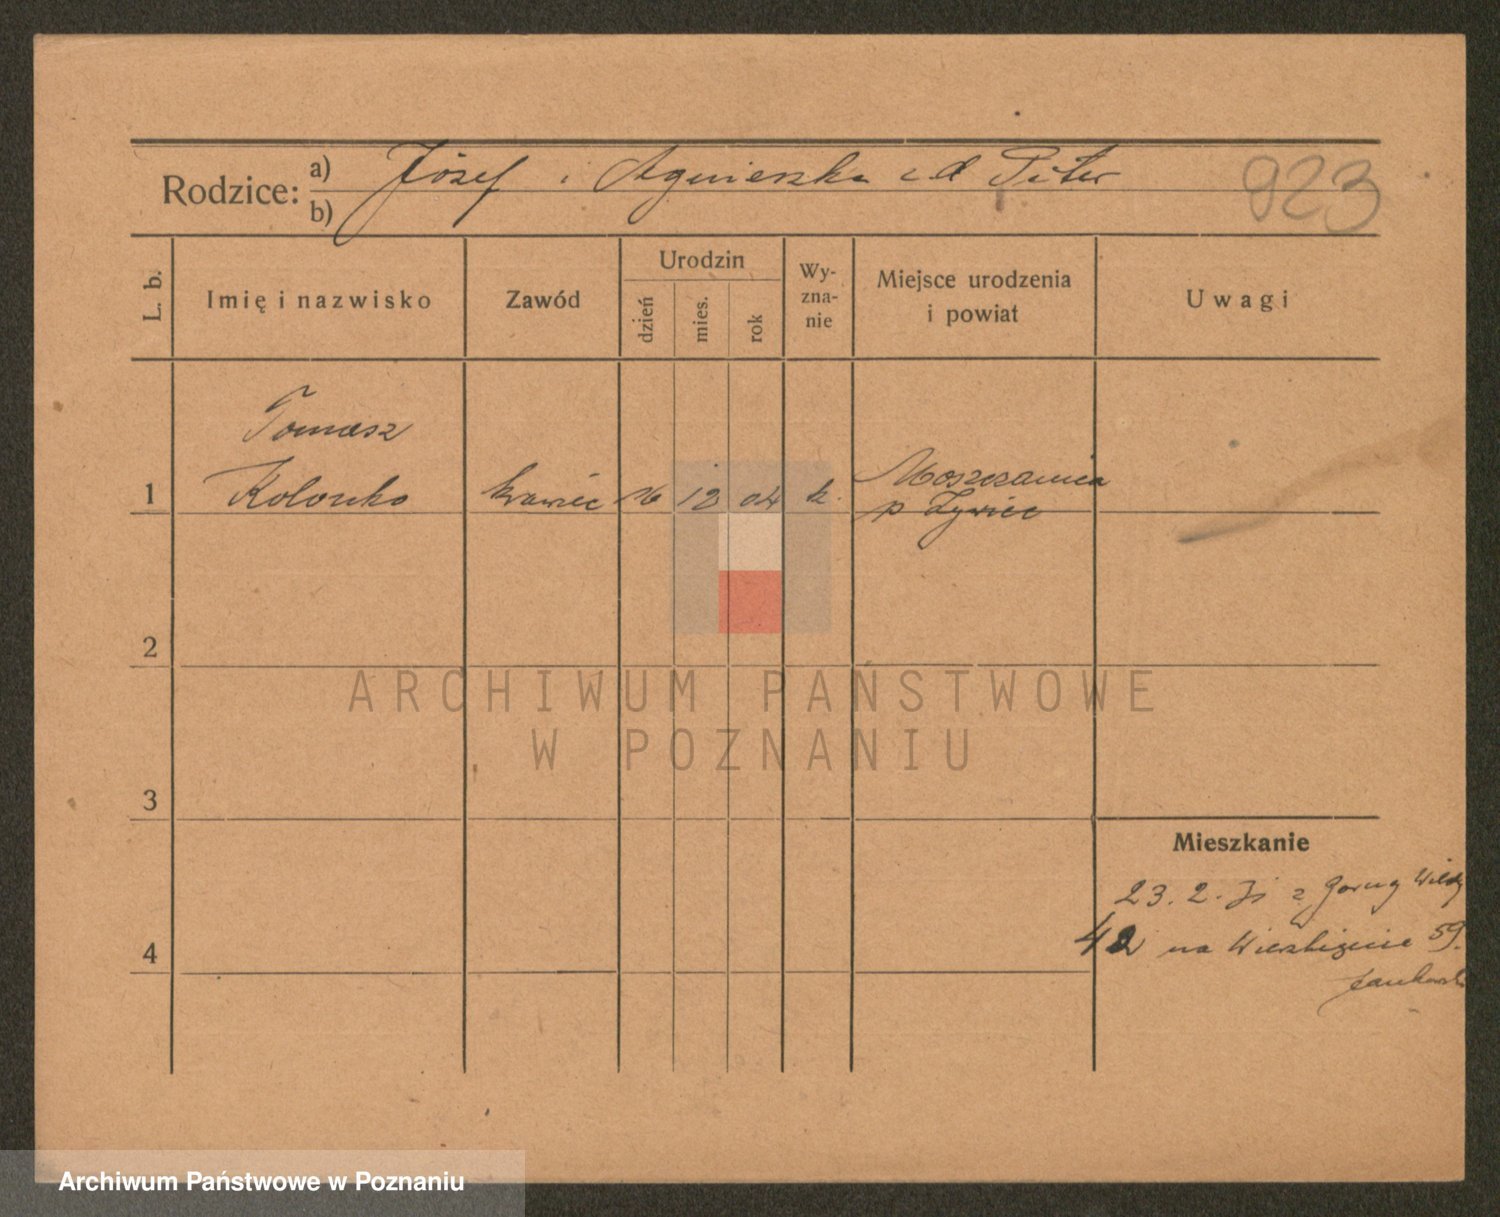 Rodzice:
a) Józef i Agnieszka z d Piter
b)
923
L. b.
Imię i nazwisko
Zawód
Urodzin
dzień
mies.
rok
Wy-
zna-
nie
Miejsce urodzenia
i powiat
Uwagi
Tomasz
1 Kolonko krawiec 16 12 04 k. Moszczanica
p Żywiec
2
3
4
ARCHIWUM PAŃSTWOWE
W POZNANIU
Mieszkanie
23. 2. z Górnej Wildy
42 na Wierzbięcice 59.
Archiwum Państwowe w Poznaniu